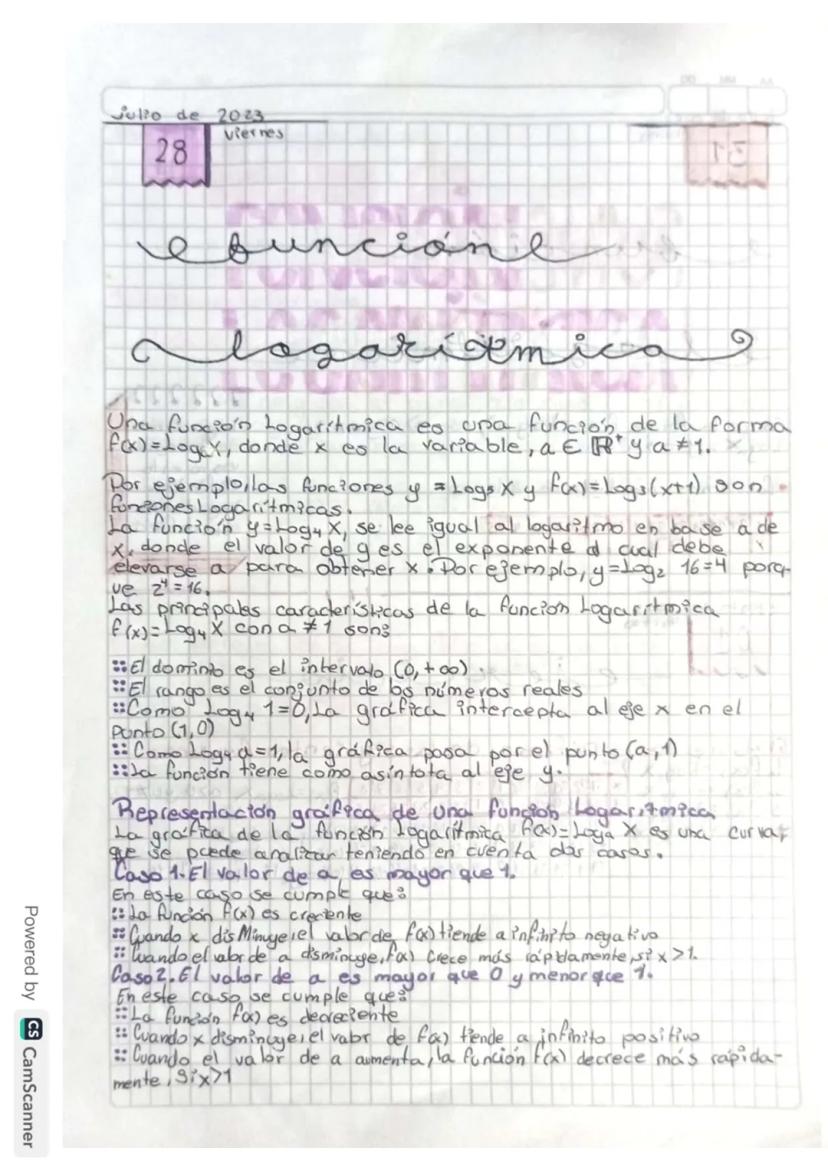 julio de 2023
viernes
28
31
función
logarítmica
Una función Logarítmica es una función de la forma
f(x)=LogaX, donde x es la variable, a ∈ ℝ⁺ y a ≠ 1.
Por ejemplo, las funciones y = Log5 X y f(x)=Log3(x+1) son
funciones Logarítmicas.
La función y=Log4 X, se lee igual al logaritmo en base a de
x, donde el valor de y es el exponente al cual debe
elevarse a para obtener x. Por ejemplo, y=Log2 16=4 porq-
ue 2⁴=16.
Las principales características de la función Logarítmica
f(x)=Log4 X con a ≠ 1 son:
:: El dominio es el intervalo (0,+∞).
:: El rango es el conjunto de los números reales
:: Como Log4 1=0, La gráfica intercepta al eje x en el
punto (1,0)
:: Como Log4 a=1, la gráfica pasa por el punto (a,1)
:: La función tiene como asíntota al eje y.
Representación gráfica de una función Logarítmica
La gráfica de la función logarítmica f(x)=Loga X es una curva,
que se puede analizar teniendo en cuenta dos casos.
Caso 1. El valor de a es mayor que 1.
En este caso se cumple que:
:: La función f(x) es creciente
:: Cuando x disMinuye, el valor de f(x) tiende a infinito negativo
:: Cuando el valor de a disminuye, f(x) crece más rápidamente, si x>1.
Caso 2. El valor de a es mayor que 0 y menor que 1.
En este caso se cumple que:
:: La función f(x) es decreciente
:: Cuando x disminuye, el valor de f(x) tiende a infinito positivo
:: Cuando el valor de a aumenta, la función f(x) decrece más rápida-
mente, si x>1
Powered by CS CamScanner